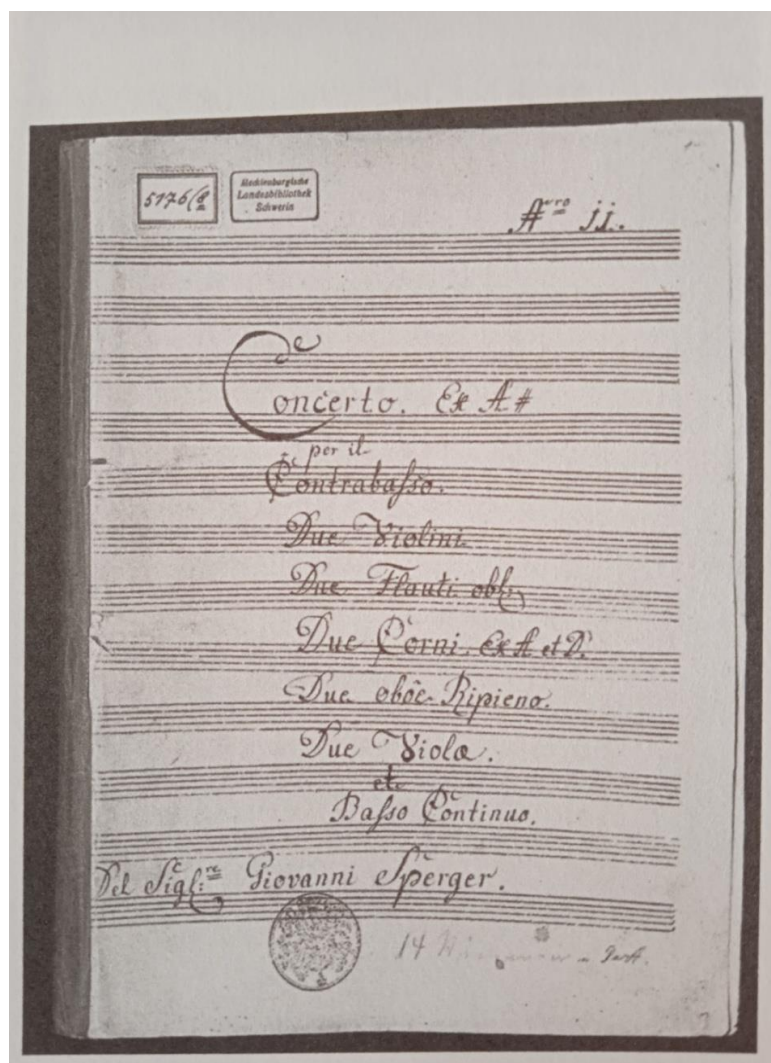 5176/8
Mecklenburgische
Landesbibliothek
Schwerin
Nro 11.
Concerto. Ex A#
per il
Contrabasso.
Due Violini
Due Flauti obl:
Due Corni. Ex A et D.
Due oboe Ripieno.
Due Viola.
et
Basso Continuo.
Del Sigl:re Giovanni Sperger.
14